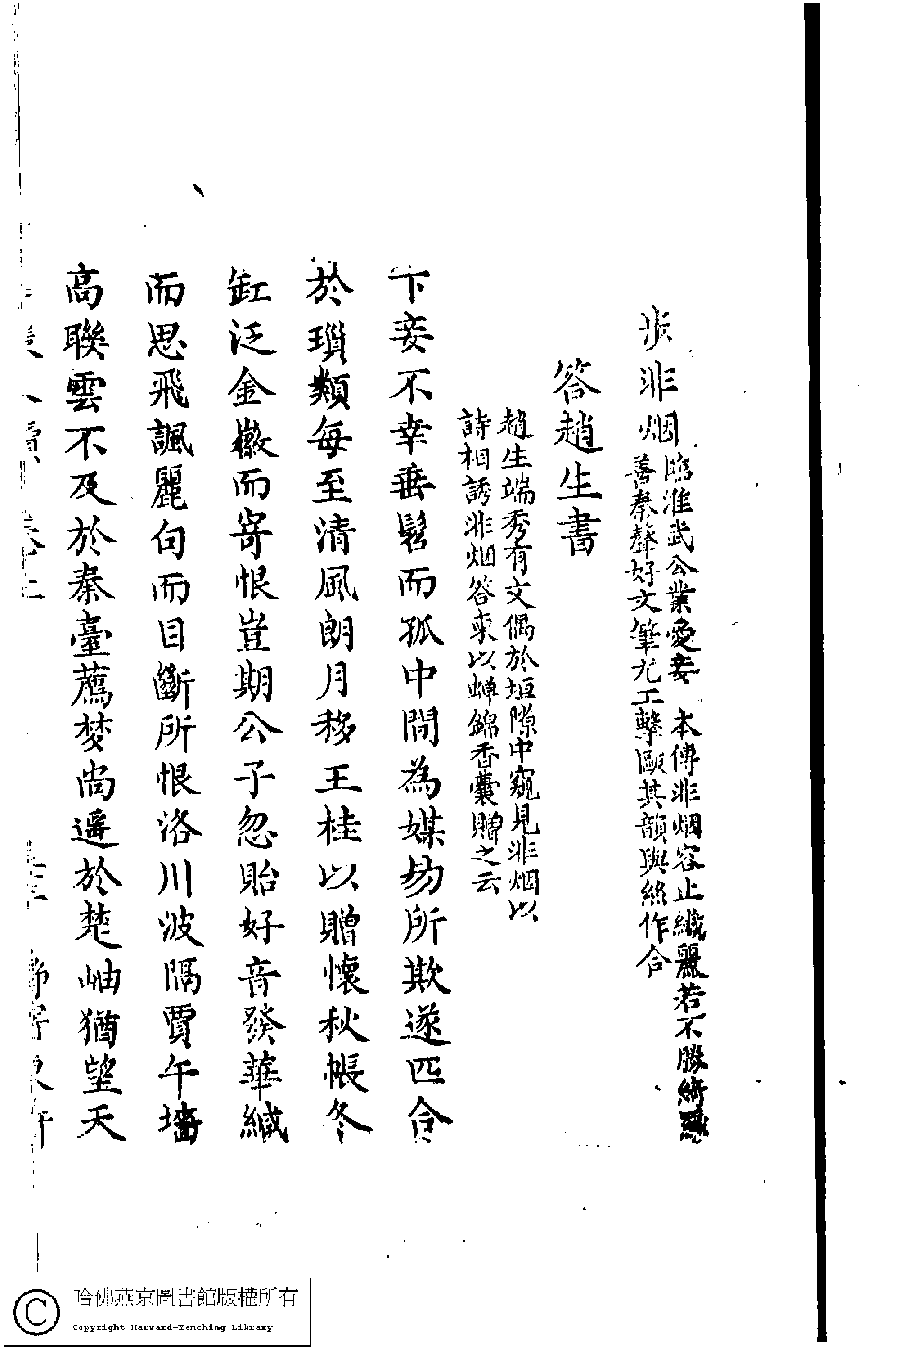 步非烟
臨淮武公業愛妾 本傳非烟容止纖麗若不勝綺羅
善秦聲好文筆尤工擊甌其韻與絲竹合
答趙生書
趙生端秀有文偶於垣隙中窺見非烟以
詩相誘非烟答柬以蟬錦香囊贈之云
下妾不幸垂髫而孤中間為媒妁所欺遂匹合
於瑣類每至清風朗月移玉桂以贈懷秋帳冬
缸泛金徽而寄恨豈期公子忽貽好音發華緘
而思飛諷麗句而目斷所恨洛川波隔賈午墻
高聯雲不及於秦臺薦梦尚遥於楚岫猶望天
哈佛燕京圖書館版權所有
Copyright Harvard-Yenching Library